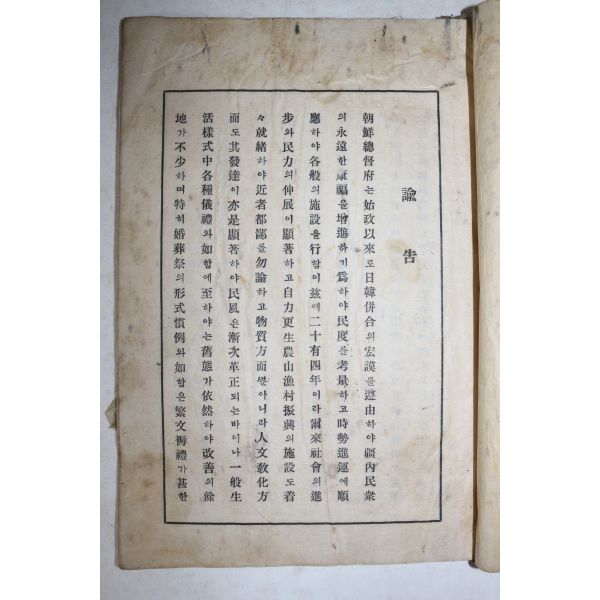 諭告
朝鮮總督府는始政以來로日韓併合의宏謨를遵由하야疆內民衆
의永遠한康福을增進하기爲하야民度를考量하고時勢進運에順
應하야各般의施設을行함이玆에二十有四年이라爾來社會의進
步와民力의伸展이顯著하고自力更生農山漁村振興의施設도着
々就緖하야近者都鄙를勿論하고物質方面뿐아니라人文敎化方
面도其發達이亦是顯著하야民風은漸次革正되는바이나一般生
活樣式中各種儀禮와如함에至하야는舊態가依然하야改善의餘
地가不少하며特히婚葬祭의形式慣例와如함은繁文褥禮가甚한